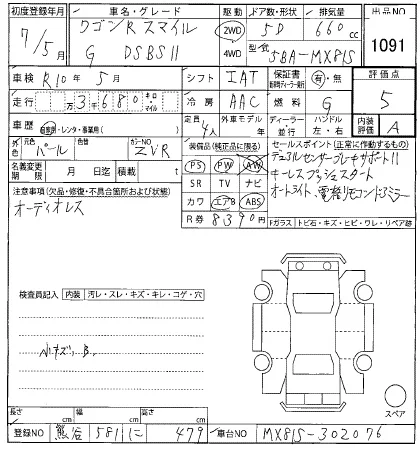 初度登録年月 車名・グレード 駆動 ドア数・形状 排気量 出品NO
7/5月 ワゴンR スマイル 2WD 5D 660cc
G DSBSⅡ 4WD 型式 5BA-MX81S 1091
車検 R10年 5月 シフト IAT 保証書 有・無 評価点
走行 万3千680 キロ・マイル 冷房 AAC 燃料 G 5
車歴 自家用・レンタ・事業用( ) 定員 4人 外車モデル 年 ディーラー・並行 ハンドル 左・右 内装 A
外色 元色 パール 色替 カラーNO ZVR 装備品(純正品に限る) セールスポイント(正常に作動するもの)
名義変更期限 月 日迄 積載 t PS PW AW デュアルセンサーブレーキサポートⅡ
注意事項(欠品・修復・不具合箇所および状態) SR TV ナビ キーレスプッシュスタート
オーディオレス カワ エアB ABS オートライト、電格リモコンドアミラー
R券 8390円 Fガラス トビ石・キズ・ヒビ・ワレ・リペア跡
検査員記入 内装 汚レ・スレ・キズ・キレ・コゲ・穴
小キズ、B、
スペア
長さ cm 幅 cm 高さ cm
登録NO 熊谷 581 に 479 車台NO MX81S-302076